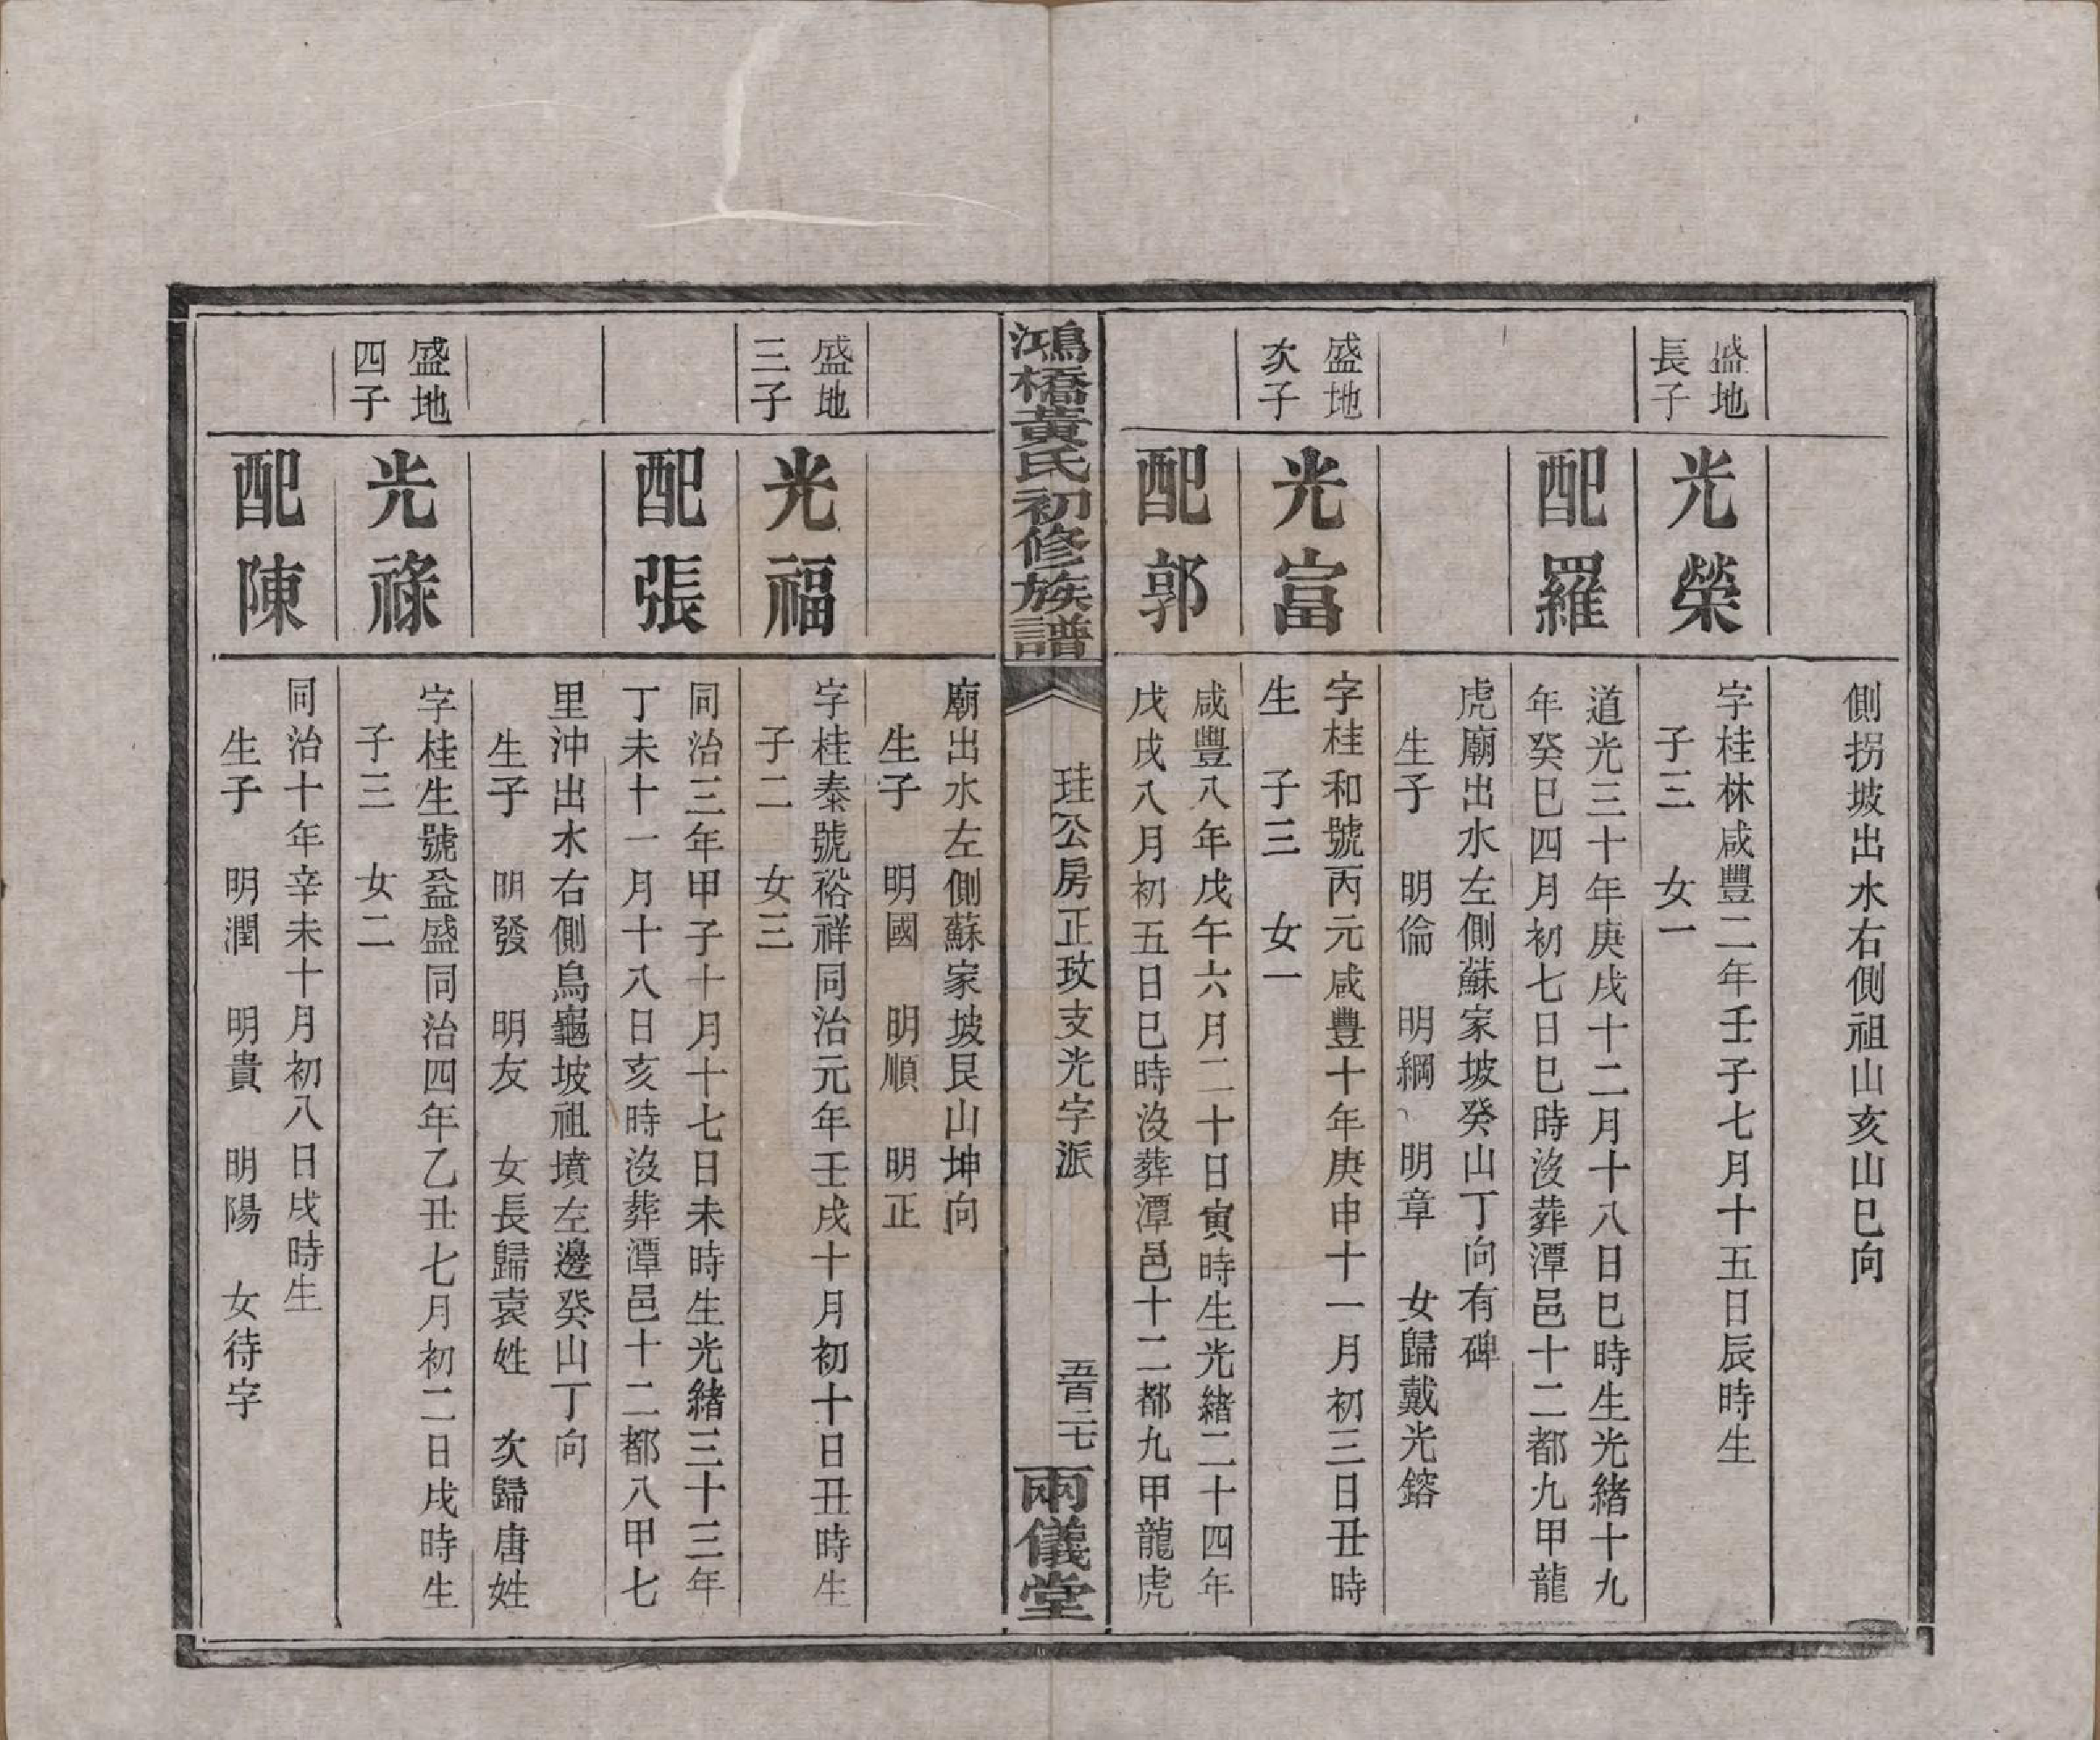 側拐坡出水右側祖山亥山巳向
盛地
長子
光榮
字桂林咸豐二年壬子七月十五日辰時生
子三　女一
配羅
道光三十年庚戌十二月十八日巳時生光緒十九
年癸巳四月初七日巳時沒葬潭邑十二都九甲龍
虎廟出水左側蘇家坡癸山丁向有碑
生子　明倫　明綱　明章　女歸戴光鎔
盛地
次子
光富
字桂和號丙元咸豊十年庚申十一月初三日丑時
生　子三　女一
配郭
咸豐八年戊午六月二十日寅時生光緒二十四年
戊戌八月初五日巳時沒葬潭邑十二都九甲龍虎
鴻橋黃氏初修族譜
珪公房正玫支光字派
五百二七
兩儀堂
廟出水左側蘇家坡艮山坤向
生子　明國　明順　明正
盛地
三子
光福
字桂泰號裕祥同治元年壬戌十月初十日丑時生
子二　女三
配張
同治三年甲子十月十七日未時生光緒三十三年
丁未十一月十八日亥時沒葬潭邑十二都八甲七
里沖出水右側烏龜坡祖墳左邊癸山丁向
生子　明發　明友　女長歸袁姓　次歸唐姓
盛地
四子
光祿
字桂生號益盛同治四年乙丑七月初二日戌時生
子三　女二
配陳
同治十年辛未十月初八日戌時生
生子　明潤　明貴　明陽　女待字